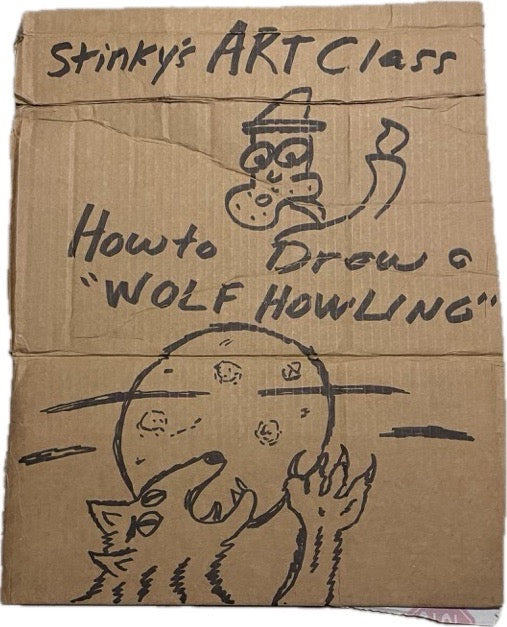 Stinky's ART Class
How to Draw a
"WOLF HOWLING"